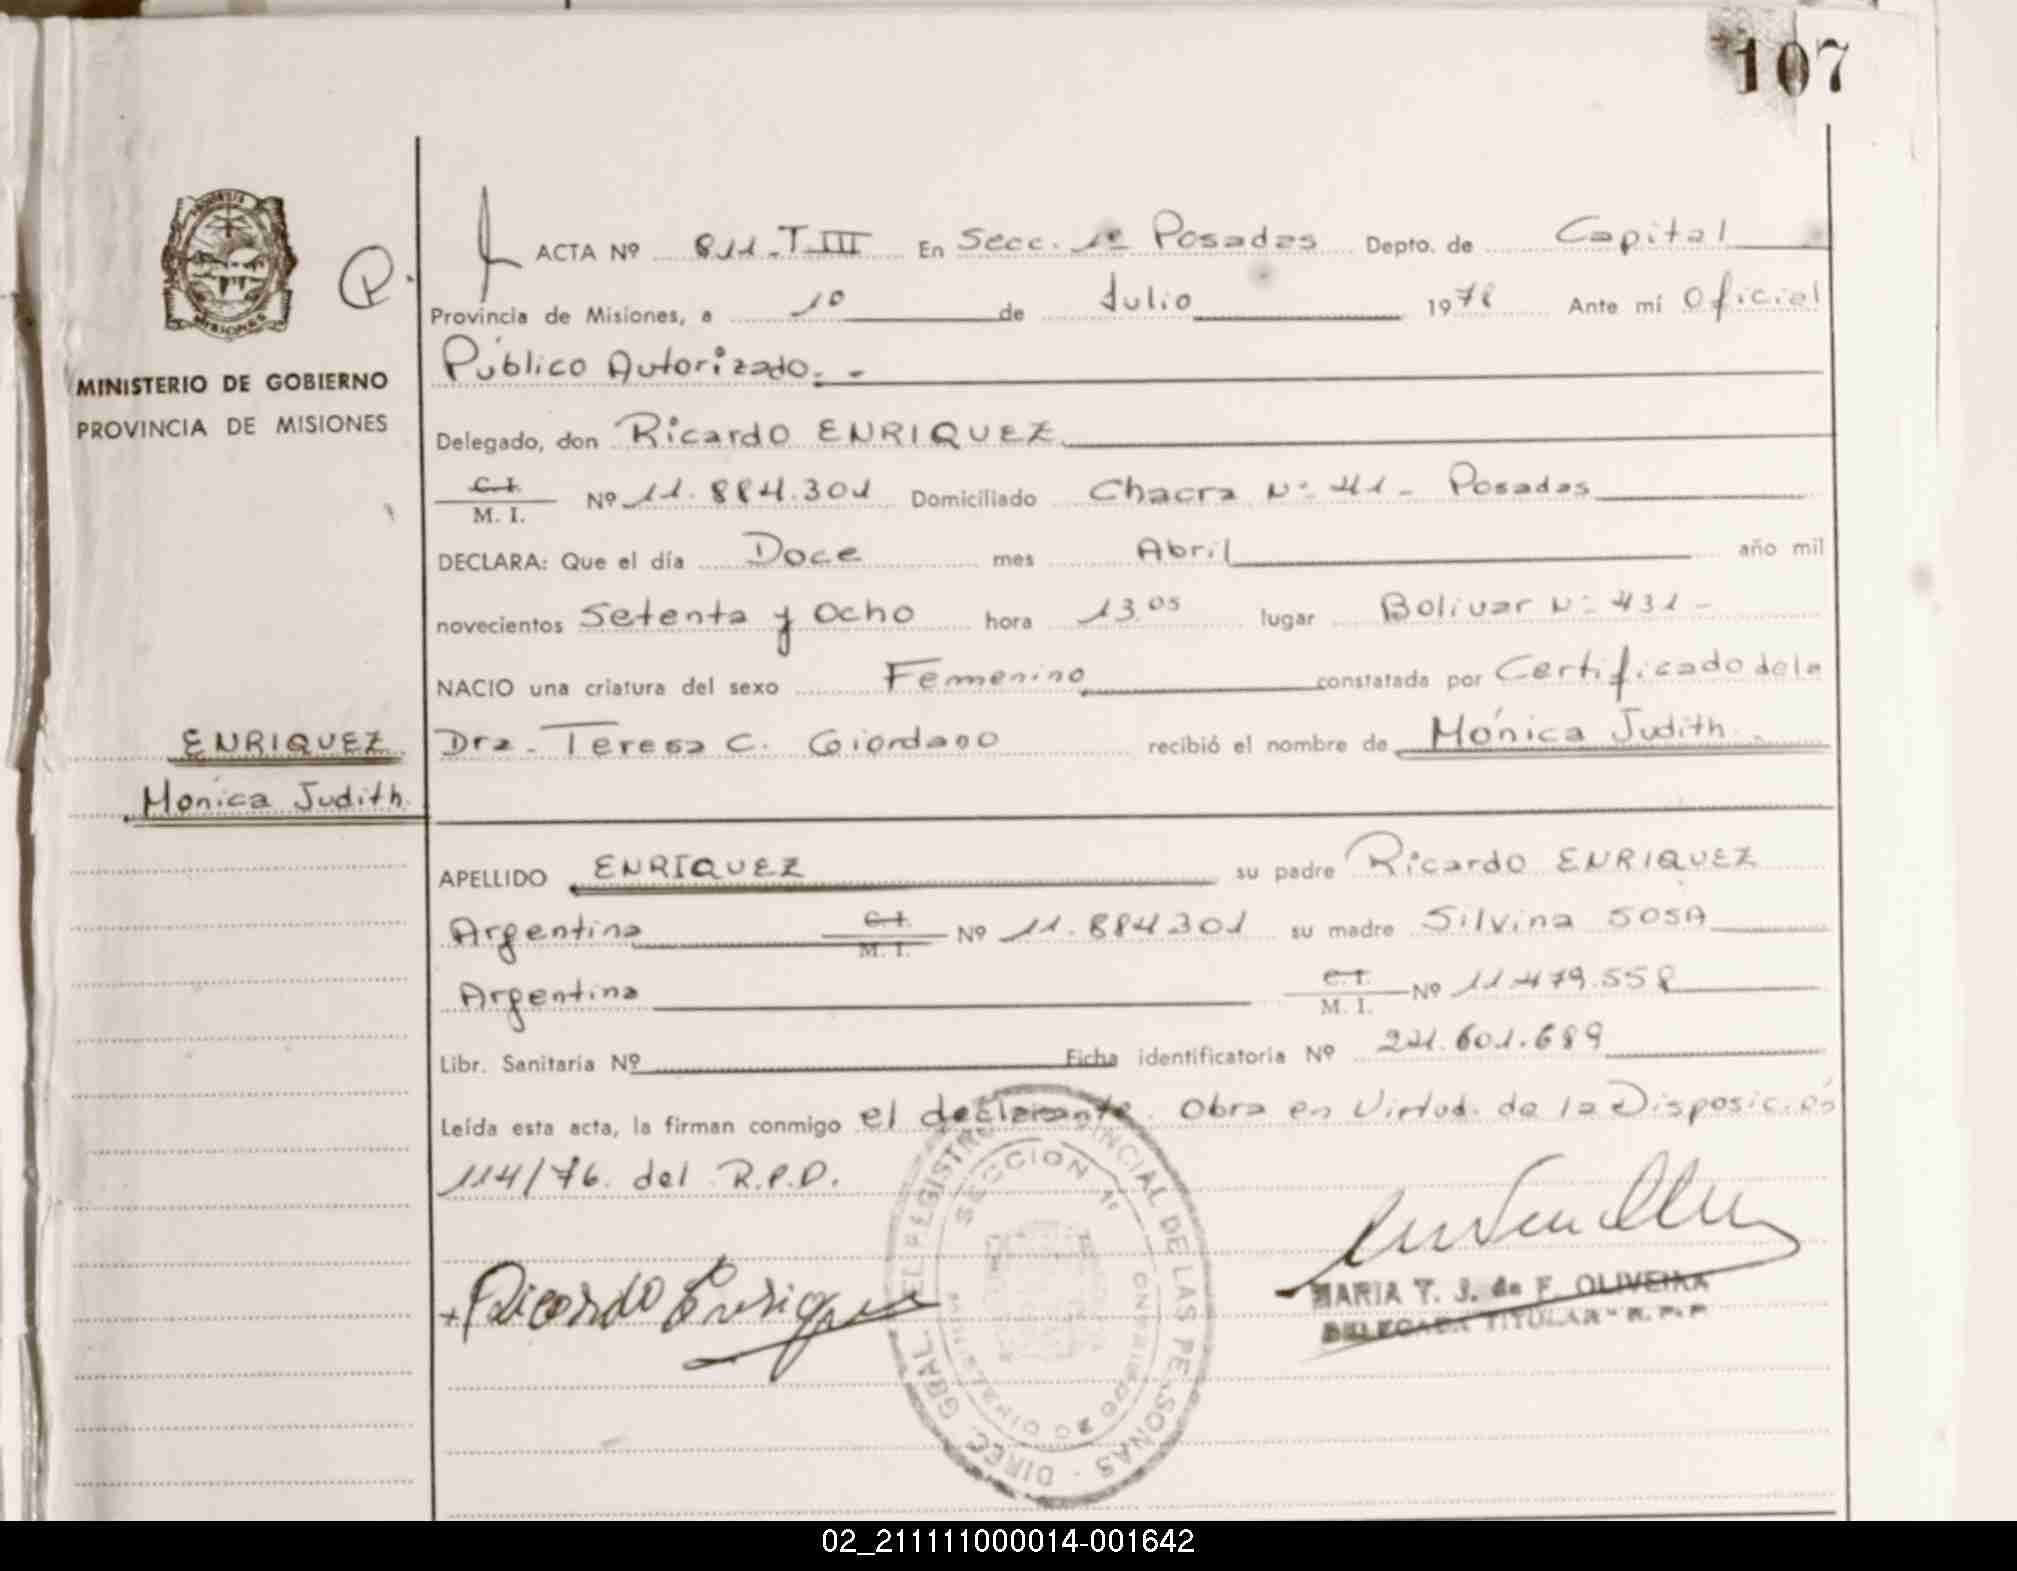 107
ACTA Nº 811-T III En Secc. 1º Posadas Depto. de Capital
Provincia de Misiones, a 10 de Julio 1978 Ante mí Oficial
Público Autorizado. -
MINISTERIO DE GOBIERNO
PROVINCIA DE MISIONES
Delegado, don Ricardo ENRIQUEZ
C.I.
M. I. Nº 11.884.301 Domiciliado Chacra Nº 41 - Posadas
DECLARA: Que el día Doce mes Abril año mil
novecientos Setenta y Ocho hora 13.05 lugar Bolivar Nº 431 -
NACIO una criatura del sexo Femenino constatada por Certificado de la
Dra. Teresa C. Giordano recibió el nombre de Mónica Judith
ENRIQUEZ
Mónica Judith.
APELLIDO ENRIQUEZ su padre Ricardo ENRIQUEZ
Argentino C.I. M. I. Nº 11.884.301 su madre Silvina SOSA
Argentina C.I. M. I. Nº 11.479.558
Libr. Sanitaria Nº Ficha identificatoria Nº 221.601.689
Leída esta acta, la firman conmigo el declarante. Obra en Virtud de la Disposición
114/76. del R.P.P.
Ricardo Enriquez
MARIA T. J. de F. OLIVEIRA
DELEGADA TITULAR - R. P. P
DIREC. GRAL. DEL REGISTRO PROVINCIAL DE LAS PERSONAS
SECCION 1ª
02_211111000014-001642